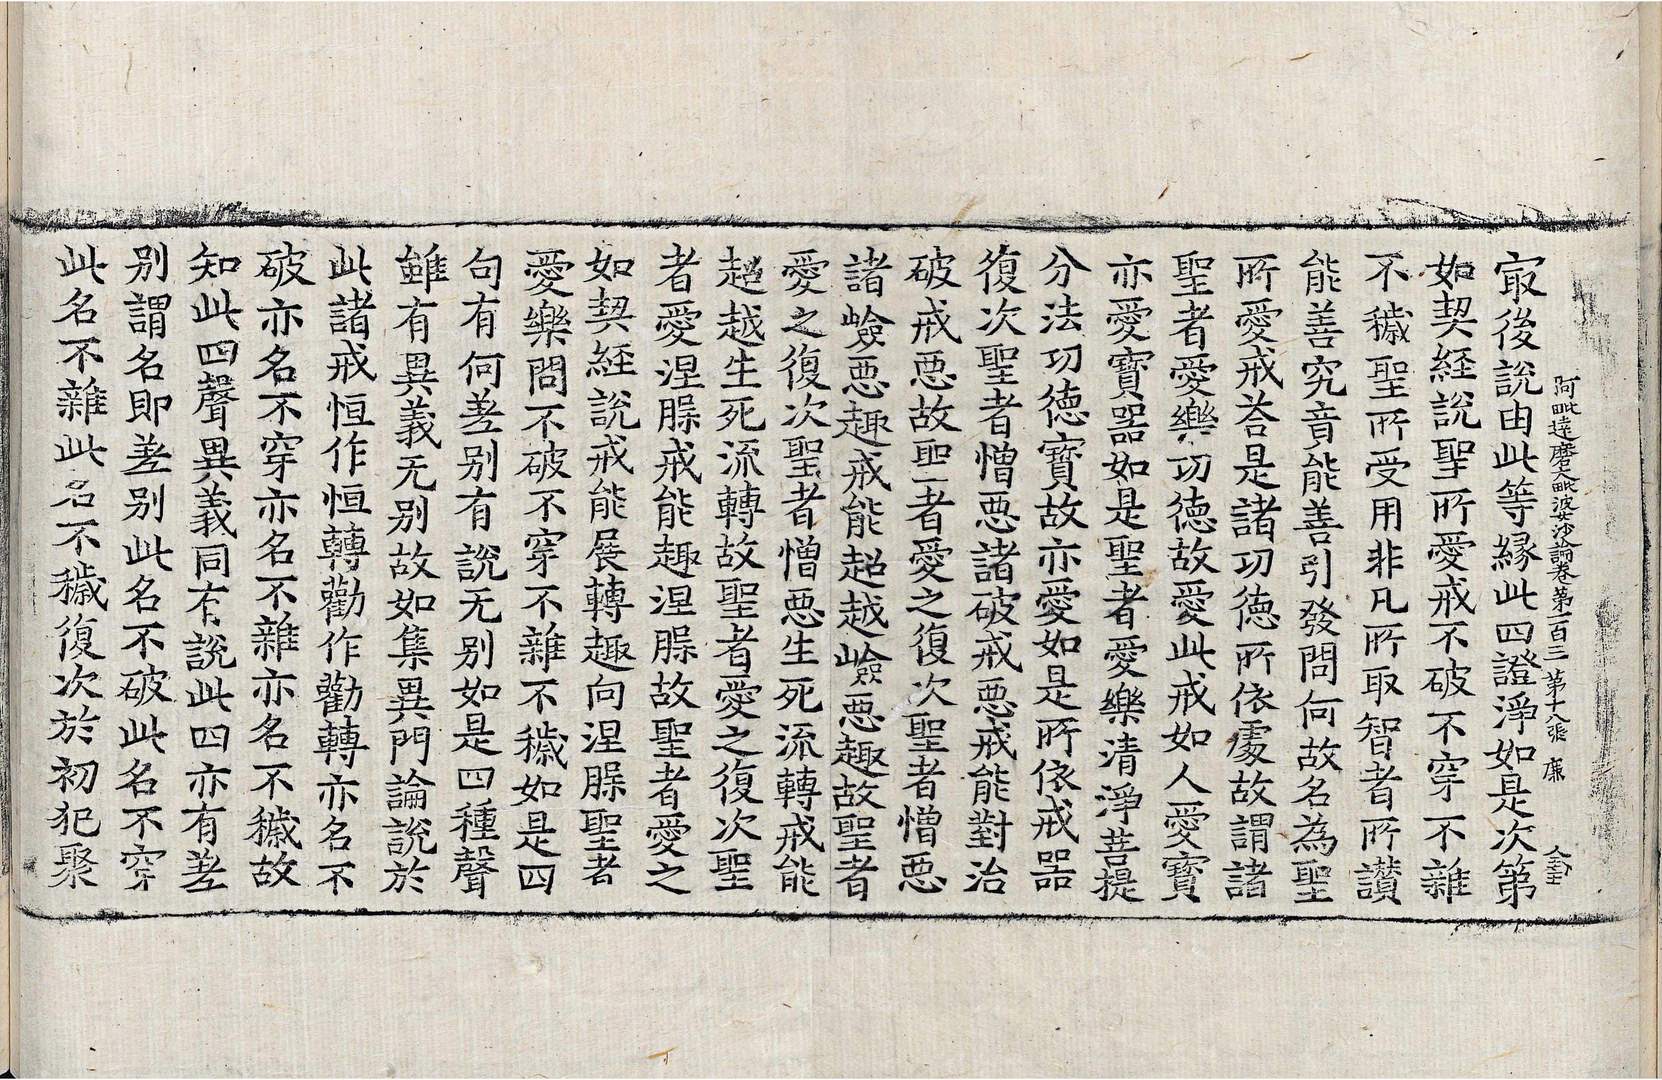 阿毗達磨大毗婆沙論卷第一百三 第十八張 廉
冣後說由此等緣此四證淨如是次第
如契經說聖所愛戒不破不穿不雜
不穢聖所受用非凡所取智者所讚
能善究竟能善引發問何故名為聖
所愛戒荅是諸功德所依處故謂諸
聖者愛樂功德故愛此戒如人愛寶
亦愛寶器如是聖者愛樂清淨菩提
分法功德寶故亦愛如是所依戒器
復次聖者憎惡諸破戒惡戒能對治
破戒惡故聖者愛之復次聖者憎惡
諸嶮惡趣戒能超越嶮惡趣故聖者
愛之復次聖者憎惡生死流轉戒能
超越生死流轉故聖者愛之復次聖
者愛涅槃戒能趣涅槃故聖者愛之
如契經說戒能展轉趣向涅槃聖者
愛樂問不破不穿不雜不穢如是四
句有何差別有說无別如是四種聲
雖有異義无別故如集異門論說於
此諸戒恒作恒轉勸作勸轉亦名不
破亦名不穿亦名不雜亦名不穢故
知此四聲異義同有說此四亦有差
別謂名即差別此名不破此名不穿
此名不雜此名不穢復次於初犯聚